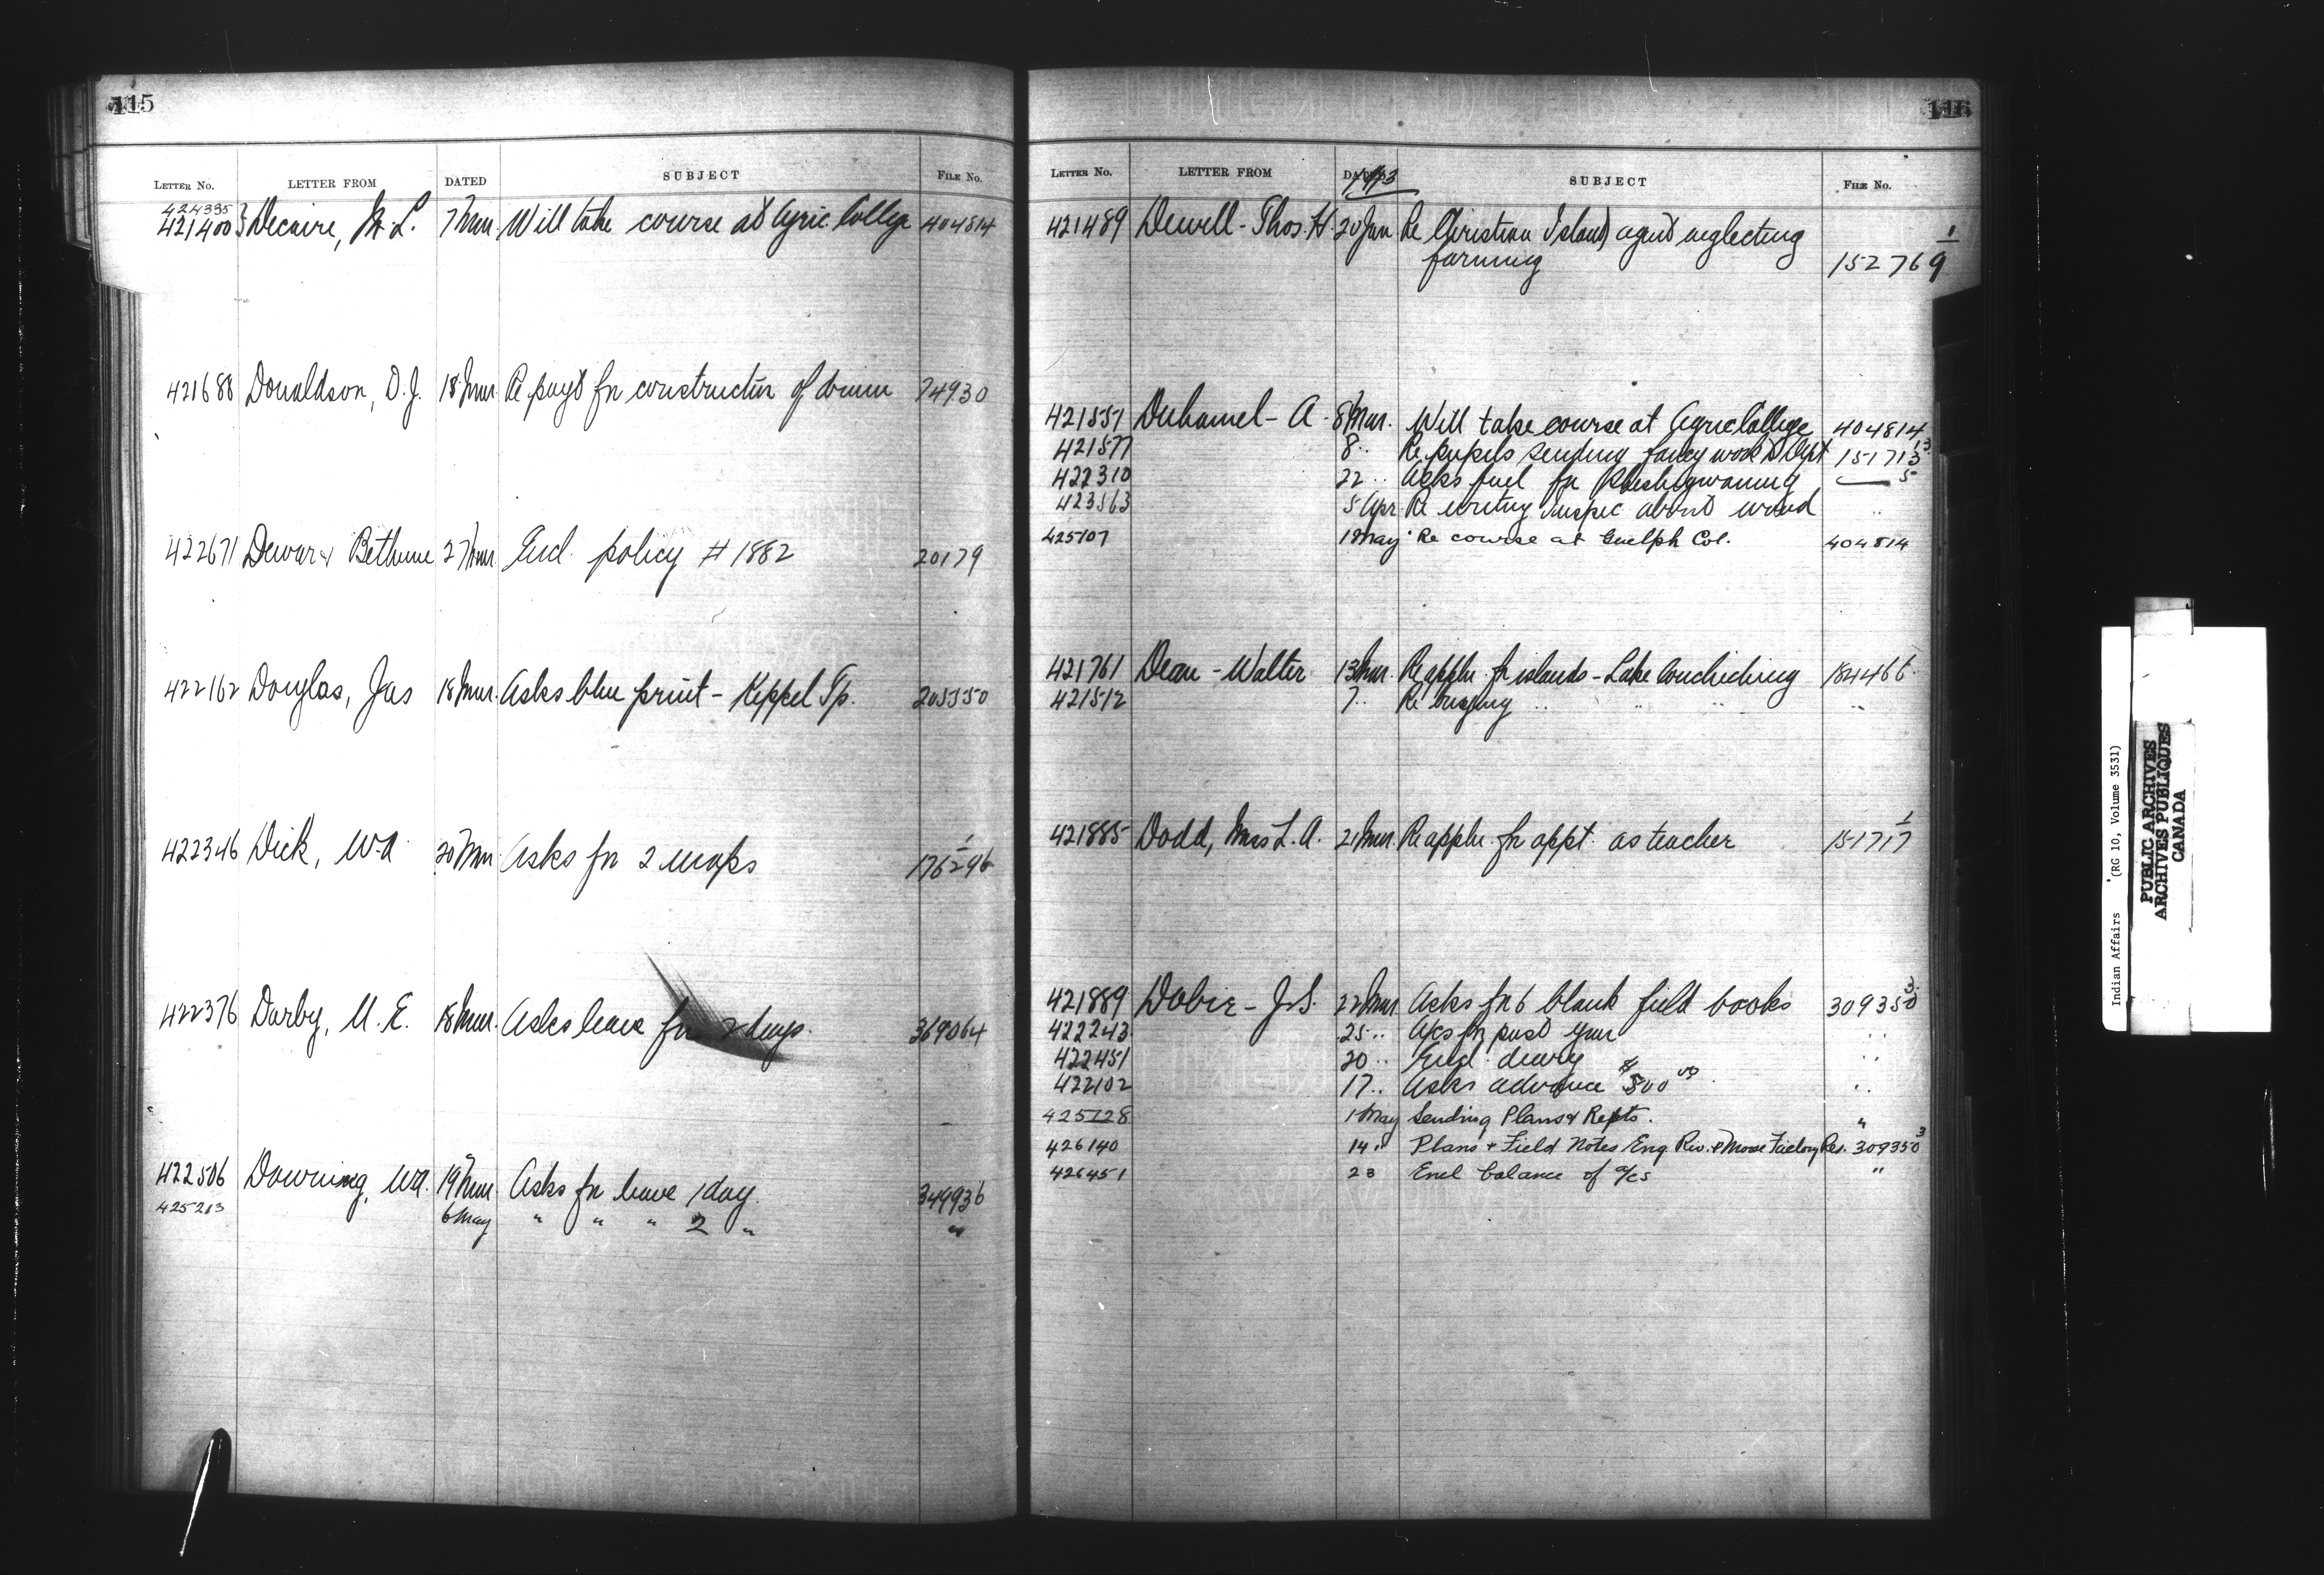 115
LETTER No. LETTER FROM DATED SUBJECT FILE No.
424335
421400 } Decaire, M. L. 7 Mar. Will take course at Agric. College 404814
421688 Donaldson, D. J. 18 Mar. Re payt fr construction of drain 74930
422671 Dewar & Bethune 27 Mar. Encl. policy # 1882 20179
422162 Douglas, Jas 18 Mar. Asks blue print - Keppel Tp. 205550
422346 Dick, W.A. 20 Mar Asks fr 2 maps 176296 1
422376 Darby, M. E. 18 Mar. Asks leave for 2 days. 369064
422506 Downing, W.A. 19 Mar Asks fr leave 1 day. 349936
425213 6 May " " " 2 " "
116
LETTER No. LETTER FROM DATED 1913 SUBJECT FILE No.
421489 Dewell - Thos. H. 20 Jan Re Christian Island agent neglecting
farming 152769 1
421551 Duhamel - A. 8 Mar. Will take course at Agric College 404814
421577 8 .. Re pupils sending fancy work to Dept 151713 13
422310 22 .. Asks fuel fr Sheshegwaning 5
423563 5 Apr. Re writing Inspec about wood ..
425107 1 May Re course at Guelph Col. 404814
421761 Dean - Walter 13 Mar. Re appln. fr islands - Lake Couchiching 184466
421512 7 .. Re buying .. .. .. ..
421885 Dodd, Miss L. A. 21 Mar. Re appln. fr appt. as teacher 151717 1
421889 Dobie - J. S. 22 Mar. Asks fr 6 blank field books 309350 3
422243 25 .. A/cs fr past year ..
422451 20 .. Encl. diary ..
422102 17 .. Asks advance $500 00 ..
425128 1 May Sending Plans & Repts. "
426140 14 " Plans & Field Notes Eng Riv. & Moose Factory Res. 309350 3
426451 23 Encl balance of a/cs "
Indian Affairs (RG 10, Volume 3531)
PUBLIC ARCHIVES
ARCHIVES PUBLIQUES
CANADA